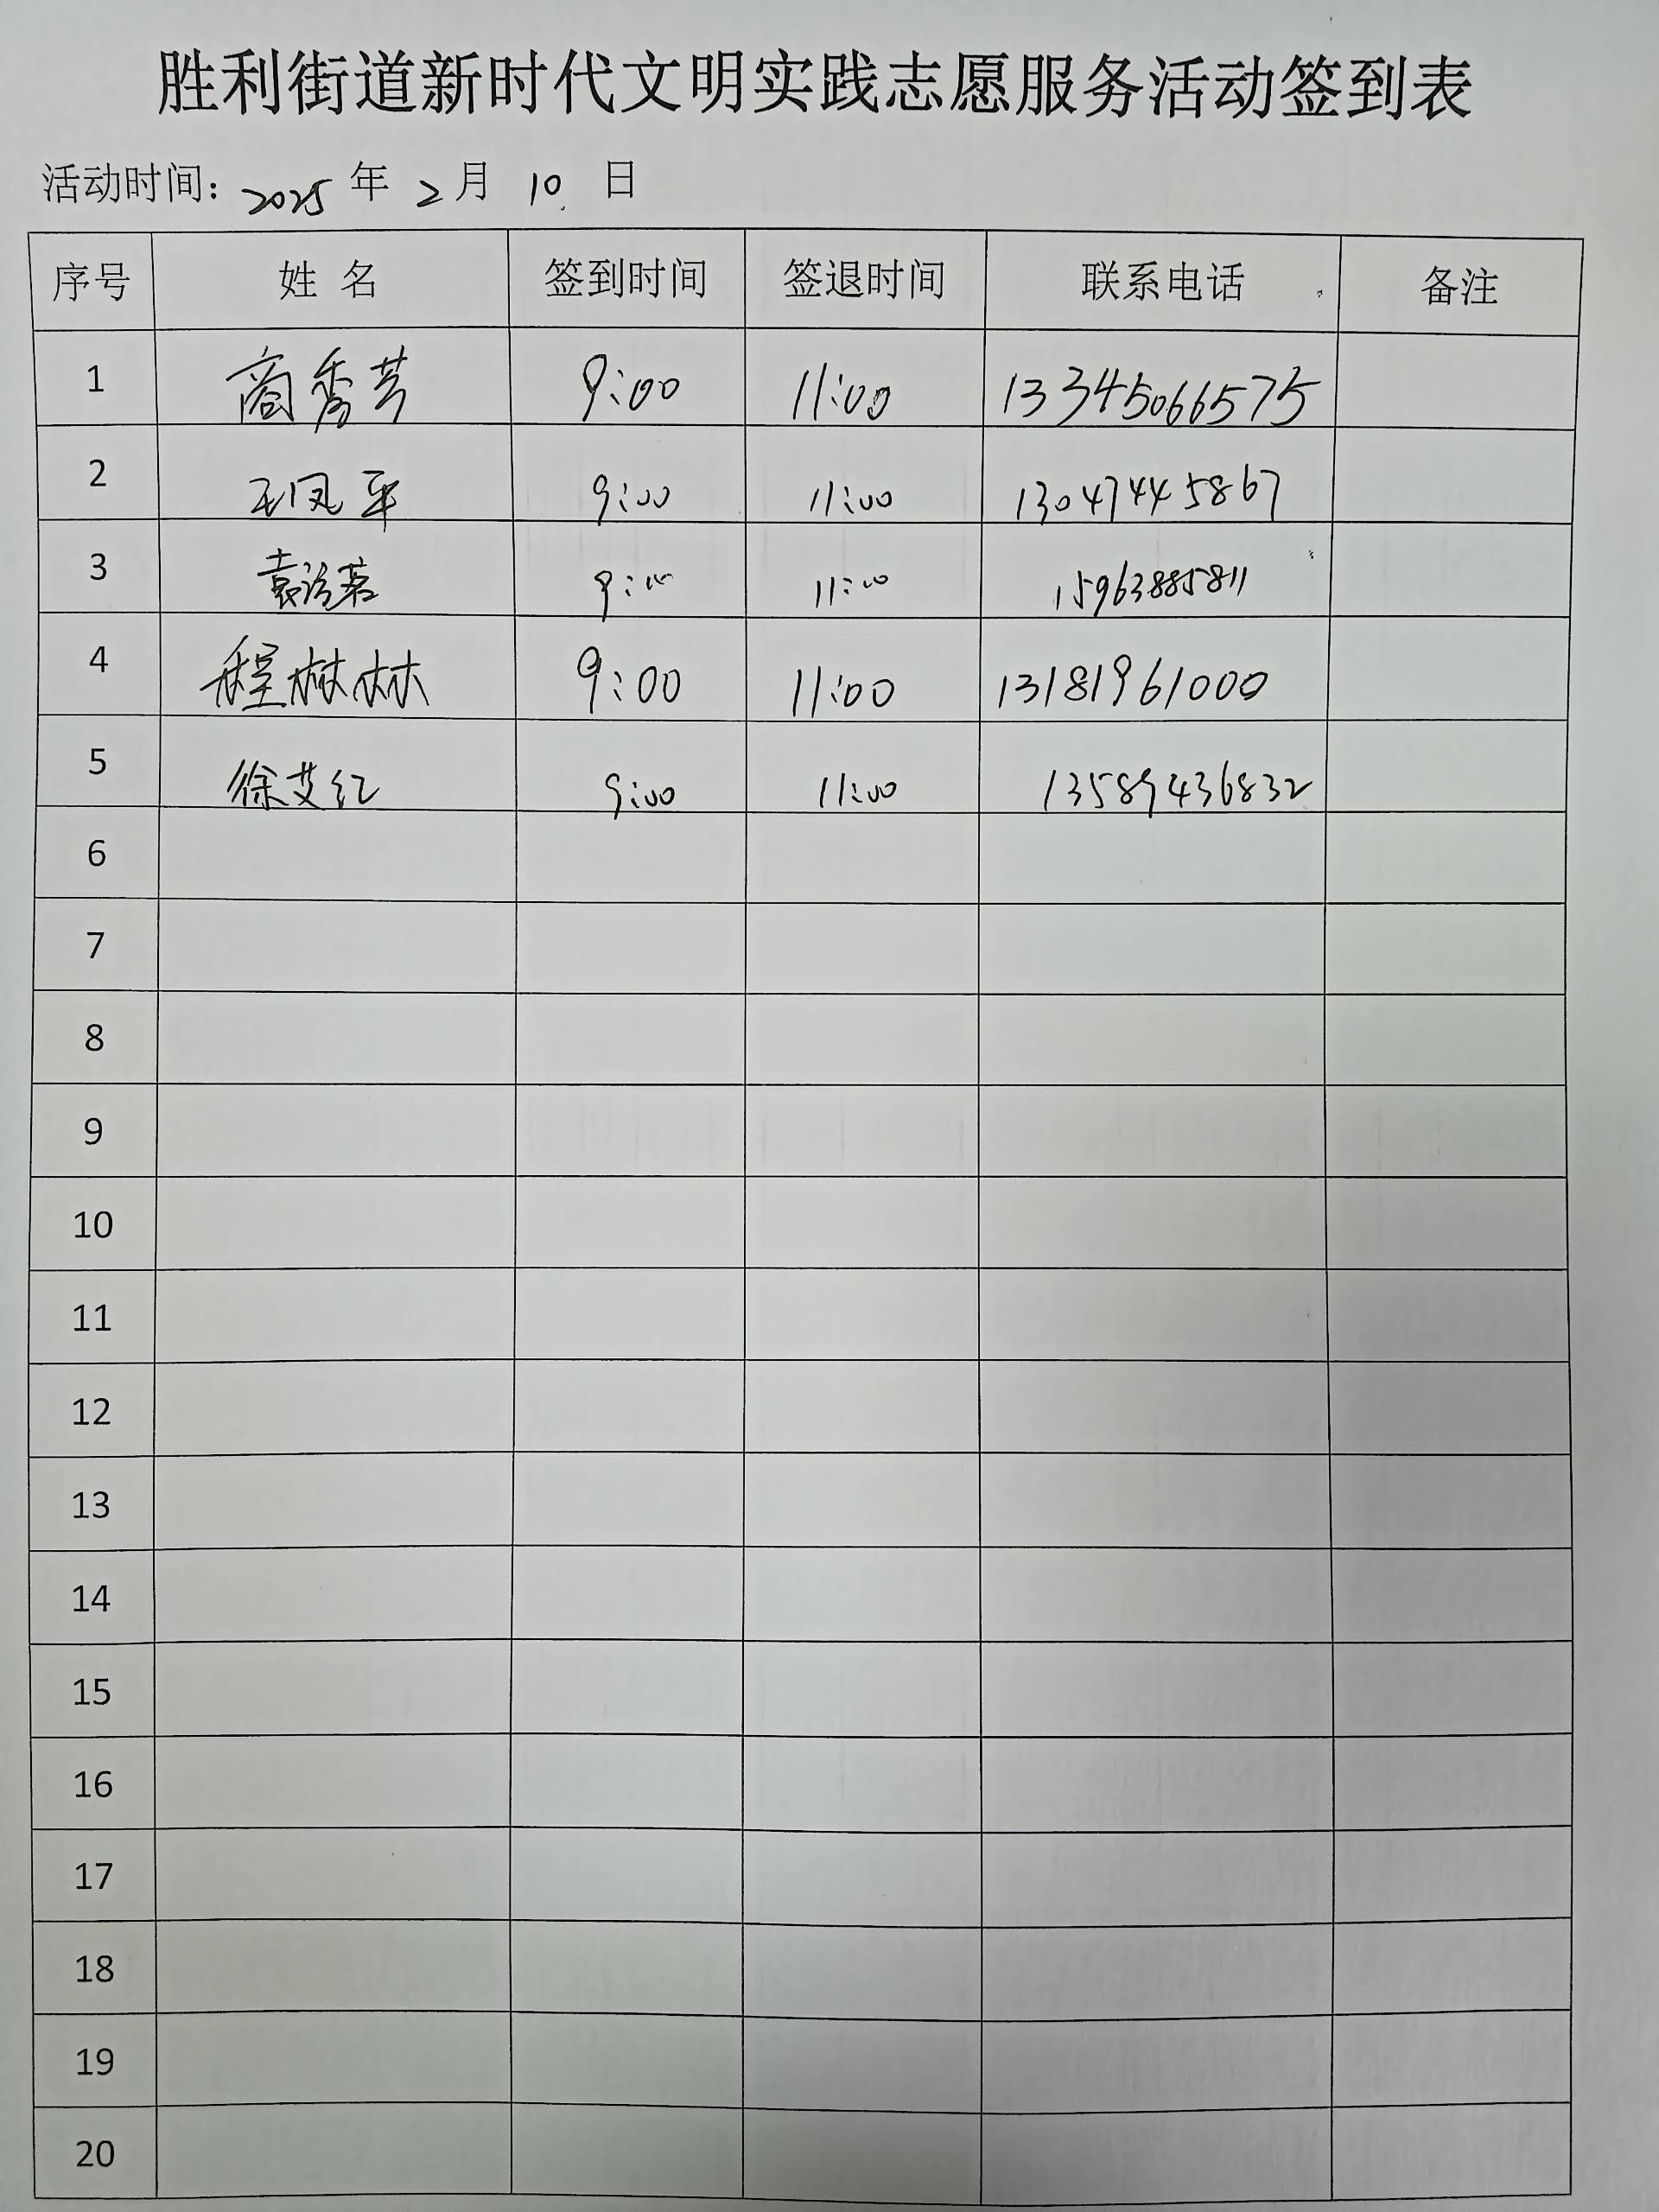 胜利街道新时代文明实践志愿服务活动签到表
活动时间：2025 年 2 月 10 日
序号 姓 名 签到时间 签退时间 联系电话 备注
1 商秀芳 9:00 11:00 13345066575
2 王凤平 9:00 11:00 13047445867
3 9:00 11:00 15963885811
4 程林林 9:00 11:00 13181961000
5 徐艾红 9:00 11:00 13589436832
6
7
8
9
10
11
12
13
14
15
16
17
18
19
20